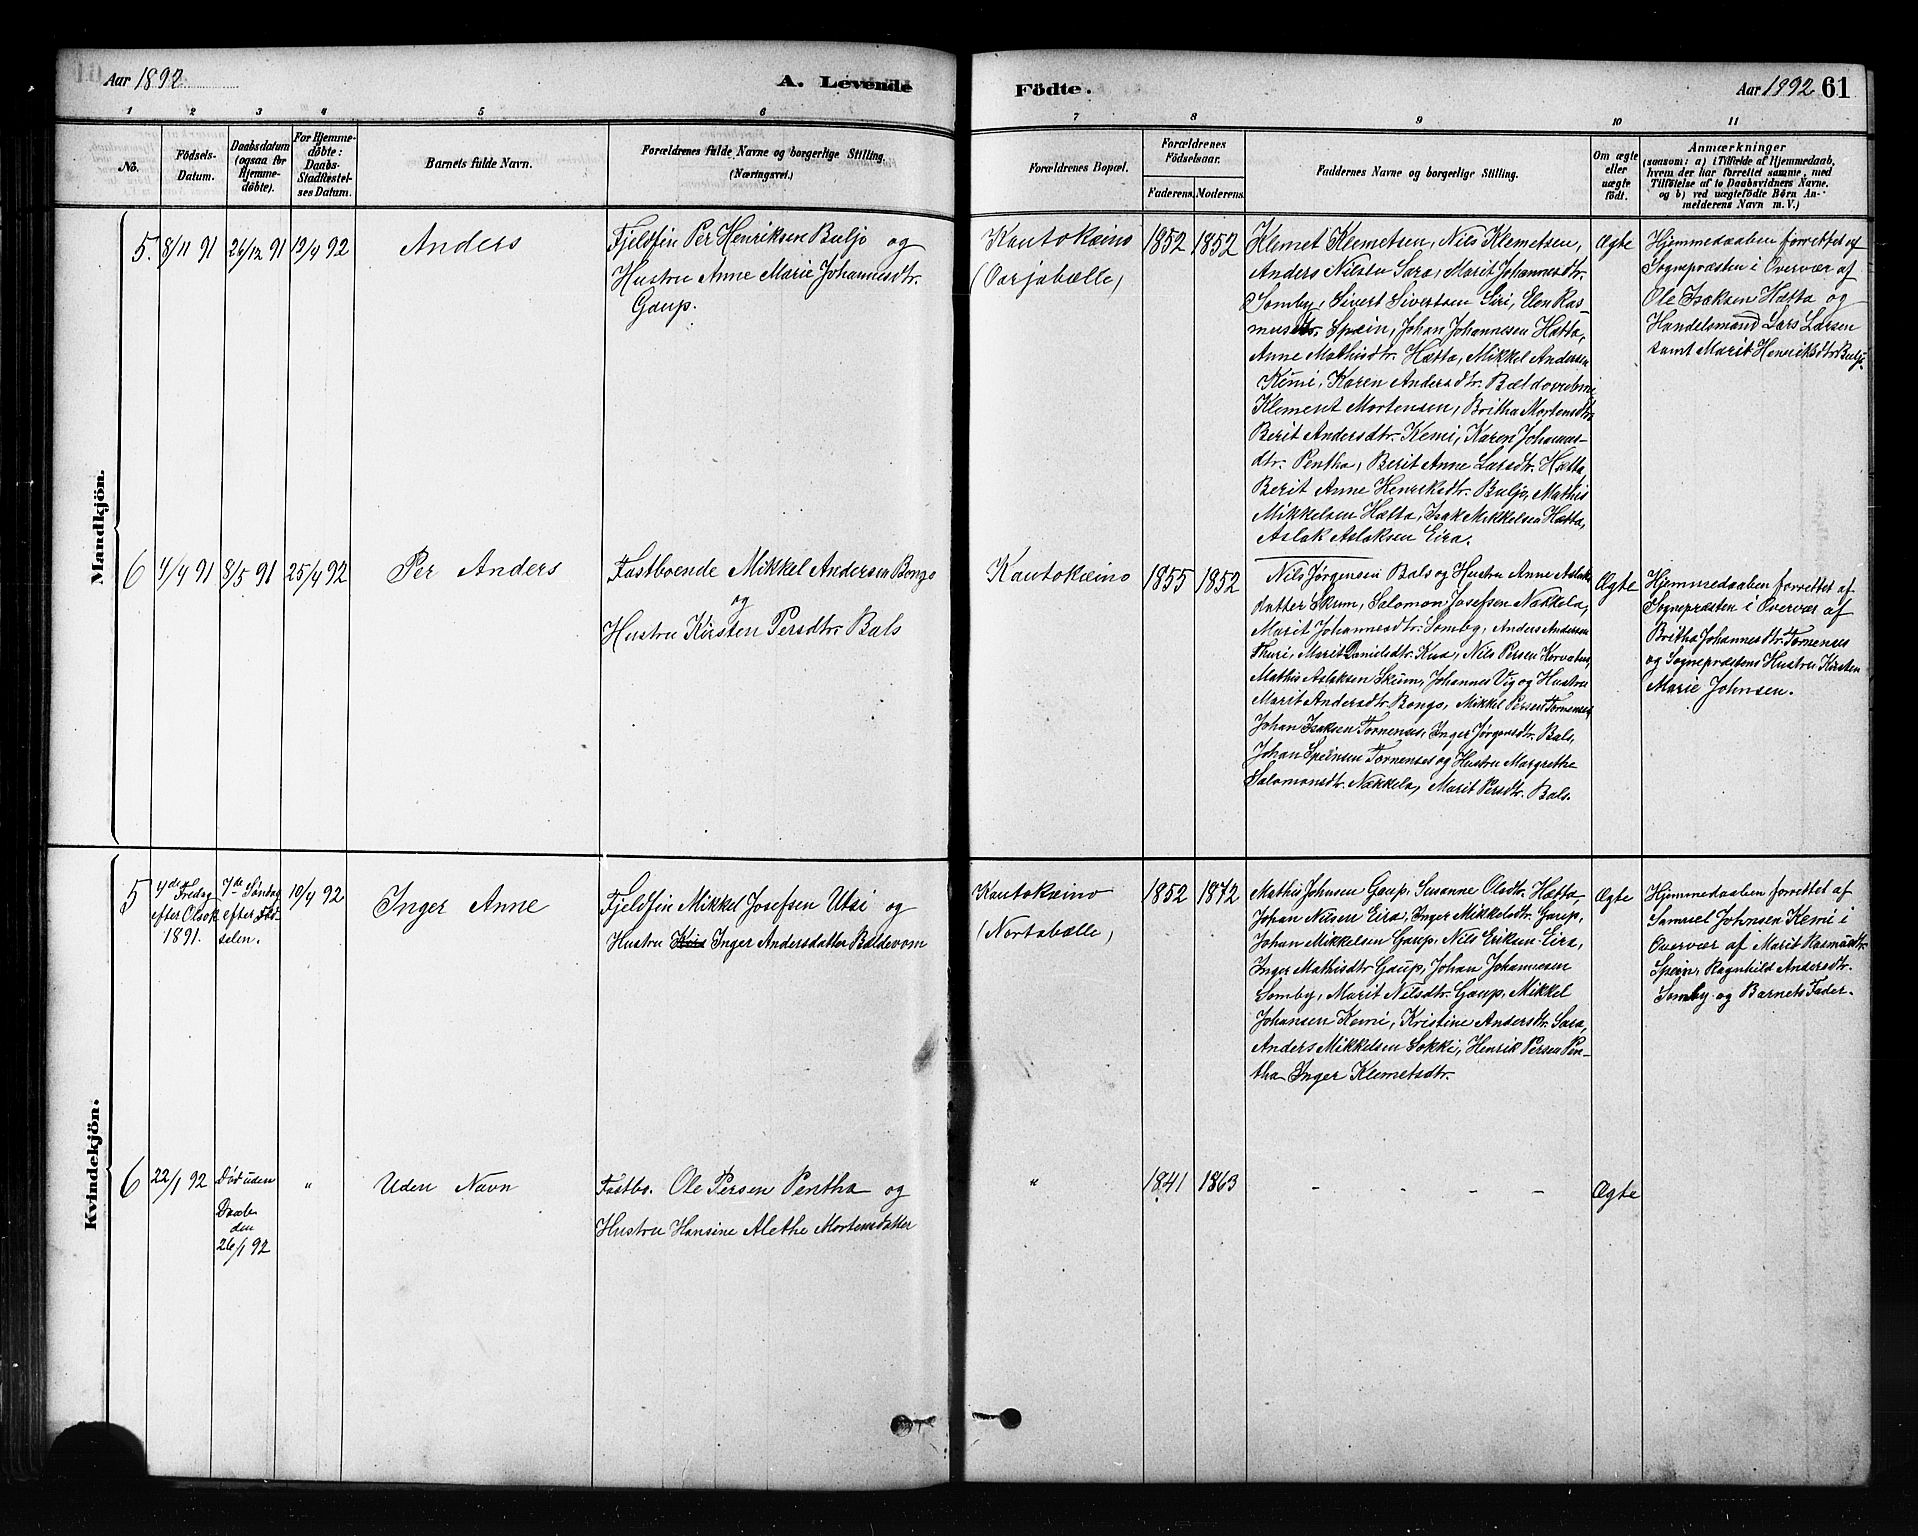 Aar 1892
A. Levende
Födte.
Aar 1892 61
1 2 3 4 5 6 7 8 9 10 11
No.
Födsels-
Datum.
Daabsdatum
(ogsaa for
Hjemme-
döbte).
For Hjemme-
döbte:
Daabs-
Stadfæstel-
ses Datum.
Barnets fulde Navn.
Forældrenes fulde Navne og borgerlige Stilling.
(Næringsvei.)
Forældrenes Bopæl.
Forældrenes
Födselsaar.
Faderens. Moderens.
Faddernes Navne og borgerlige Stilling.
Om ægte
eller
uægte
födt.
Anmærkninger
(saasom: a) i Tilfælde af Hjemmedaab,
hvem der har forrettet samme, med
Tilföielse af to Daabsvidners Navne.
og b) ved uægtefödte Börn An-
melderens Navn m. V.)
Mandkjön.
5. 8/11 91 26/12 91 12/4 92 Anders
Fjeldfin Per Henriksen Buljo og
Hustru Anne Marie Johannesdtr.
Gaup.
Kautokæino
(Oarjabælle)
1852 1852
Klemet Klemetsen, Nils Klemetsen,
Anders Nilsen Sara, Marit Johannesdtr.
Somby, Sivert Sivertsen Siri, Elen Ras-
musdtr. Spein, Johan Johannesen Hætta,
Anne Mathisdtr. Hætta, Mikkel Andersen
Kemi, Karen Andersdtr. Bæl
Klemet Mortensen, Britha Mortensdtr.
Berit Andersdtr. Kemi, Karen Johannes-
dtr. Pentha, Berit Anne Larsdtr. Hætta
Berit Anne Henriksdtr. Buljo, Mathis
Mikkelsen Hætta, Isak Mikkelsen Hætta,
Aslak Aslaksen Eira.
Ægte
Hjemmedaaben forrettet af
Sognepræsten i Overvær af
Ole Isaksen Hætta og
Handelsmand Lars Larsen
samt Marit Henriksdtr Buljo.
6 4/4 91 8/5 91 25/4 92 Per Anders
Fastboende Mikkel Andersen Bongo
og
Hustru Kirsten Persdtr. Bals
Kautokæino
1855 1852
Nils Jørgensen Bals og Hustru Anne Aslak
datter Skum, Salomon Josefsen Nækkela,
Marit Johannesdtr. Somby, Anders Andersen
Thuri, Marit Danielsdtr. Kua, Nils Persen
Mathis Aslaksen Skum, Johannes Vig og Hustru
Marit Andersdtr. Bongo, Mikkel Persen Tornenses,
Johan Isaksen Tornenses, Inger Jørgensdtr. Bals,
Johan Speinsen Tornenses og Hustru Margrethe
Salomonsdtr. Nækkela, Marit Persdtr. Bals.
Ægte
Hjemmedaaben forrettet af
Sognepræsten i Overvær af
Britha Johannesdtr. Tornenses
og Sognepræstens Hustru Kirsten
Marie Johnsen.
Kvindekjön.
5 4de Fredag
efter Olsok
1891.
7de Søndag
efter Fød-
selen.
10/4 92 Inger Anne
Fjeldfin Mikkel Josefsen Utsi og
Hustru Inger Andersdatter Baldevom
Kautokæino
(Nortabælle)
1852 1872
Mathis Johnsen Gaup, Susanne Olsdtr. Hætta,
Johan Nilsen Eira, Inger Mikkelsdtr. Gaup,
Johan Mikkelsen Gaup, Nils Eriksen Eira,
Inger Mathisdtr Gaup, Johan Johannesen
Somby, Marit Nilsdtr. Gaup, Mikkel
Johansen Kemi, Kristine Andersdtr. Sara,
Anders Mikkelsen Sokki, Henrik Persen Pen-
tha, Inger Klemetsdtr.
Ægte
Hjemmedaaben forrettet af
Samuel Johnsen Kemi i
Overvær af Marit Rasmusdtr.
Spein, Ragnhild Andersdtr.
Somby og Barnets Fader.
6 22/1 92
Død uden
Daab
den
26/1 92
" Uden Navn
Fastbo. Ole Persen Pentha og
Hustru Hansine Alethe Mortensdatter
" 1841 1863 - - - - Ægte